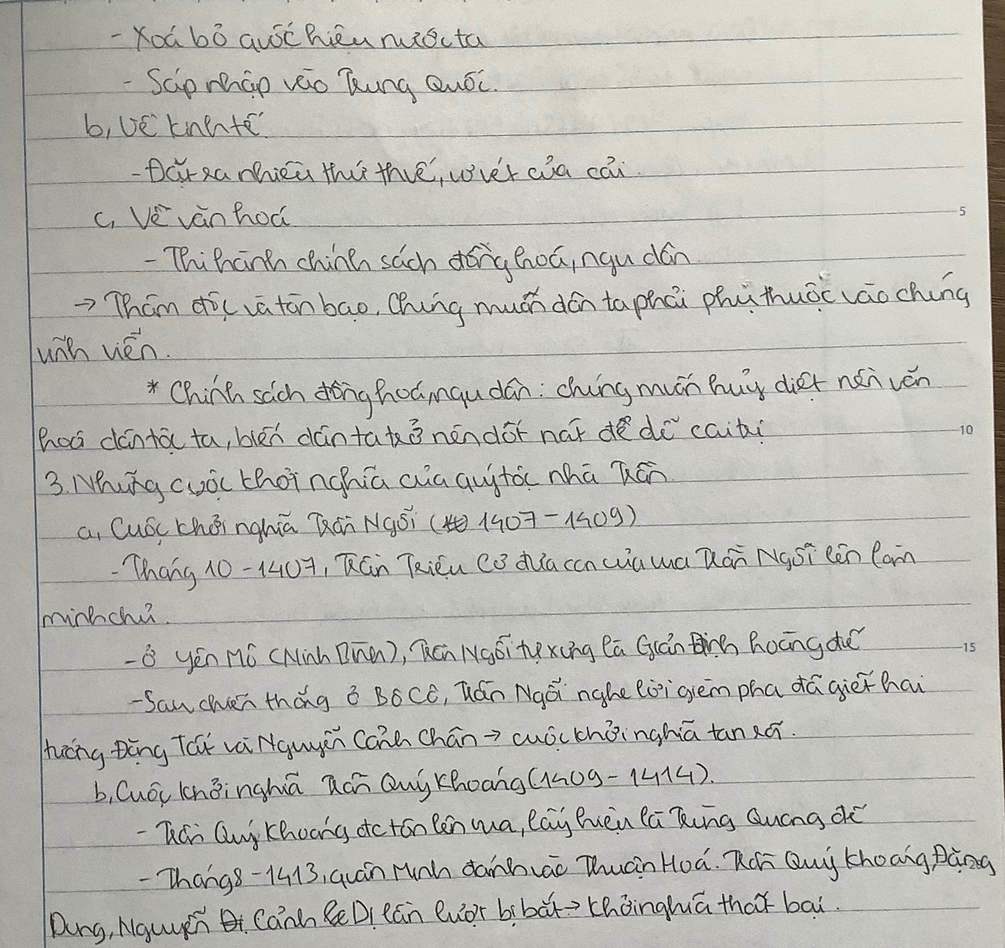 - Xoá bỏ quốc hiệu nước ta
- Sáp nhập vào Trung Quốc.
b, Về kinh tế
- Đặt ra nhiều thứ thuế, vơ vét của cải.
c, Về văn hoá
- Thi hành chính sách đồng hoá, ngu dân
→ Thâm độc và tàn bạo. Chúng muốn dân ta phải phụ thuộc vào chúng
vĩnh viễn.
* Chính sách đồng hoá, ngu dân: chúng muốn huỷ diệt nền văn
hoá dân tộc ta, biến dân ta trở nên dốt nát để dễ cai trị
3. Những cuộc khởi nghĩa của quý tộc nhà Trần
a, Cuộc khởi nghĩa Trần Ngỗi (1407 - 1409)
- Tháng 10 - 1407, Trần Triệu Cơ đưa con của vua Trần Ngỗi lên làm
minh chủ.
- Ở Yên Mô (Ninh Bình), Trần Ngỗi tự xưng là Giản Định hoàng đế
- Sau chiến thắng ở Bô Cô, Trần Ngỗi nghe lời gièm pha đã giết hai
tướng Đặng Tất và Nguyễn Cảnh Chân → cuộc khởi nghĩa tan rã.
b, Cuộc khởi nghĩa Trần Quý Khoáng (1409 - 1414).
- Trần Quý Khoáng đc tôn lên vua, lấy hiệu là Trùng Quang đế
- Tháng 8 - 1413, quân Minh đánh vào Thuận Hoá. Trần Quý Khoáng, Đặng
Dung, Nguyễn Cảnh Dị lần lượt bị bắt → khởi nghĩa thất bại.
5
10
15